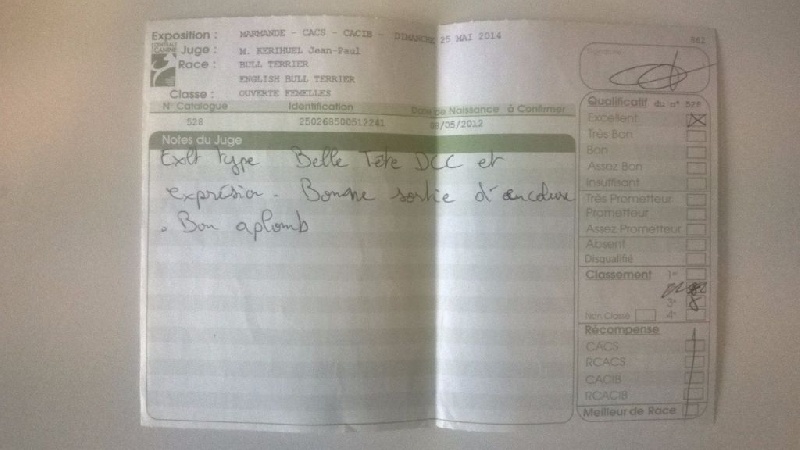 Exposition : MARMANDE - CACS - CACIB - DIMANCHE 25 MAI 2014
CENTRALE CANINE
Juge : M. KERIHUEL Jean-Paul
Race : BULL TERRIER
ENGLISH BULL TERRIER
Classe : OUVERTE FEMELLES
N° Catalogue Identification Date de Naissance à Confirmer
528 08/05/2012
Notes du Juge
Exlt type Belle Tête DCC et
exprésion. Bonne sortie d'encolure
. Bon aplomb
Qualificatif du n° 528
Excellent
Très Bon
Bon
Assez Bon
Insuffisant
Très Prometteur
Prometteur
Assez Prometteur
Absent
Disqualifié
Classement 1er
3e
Non Classé 4e
Récompense
CACS
RCACS
CACIB
RCACIB
Meilleur de Race